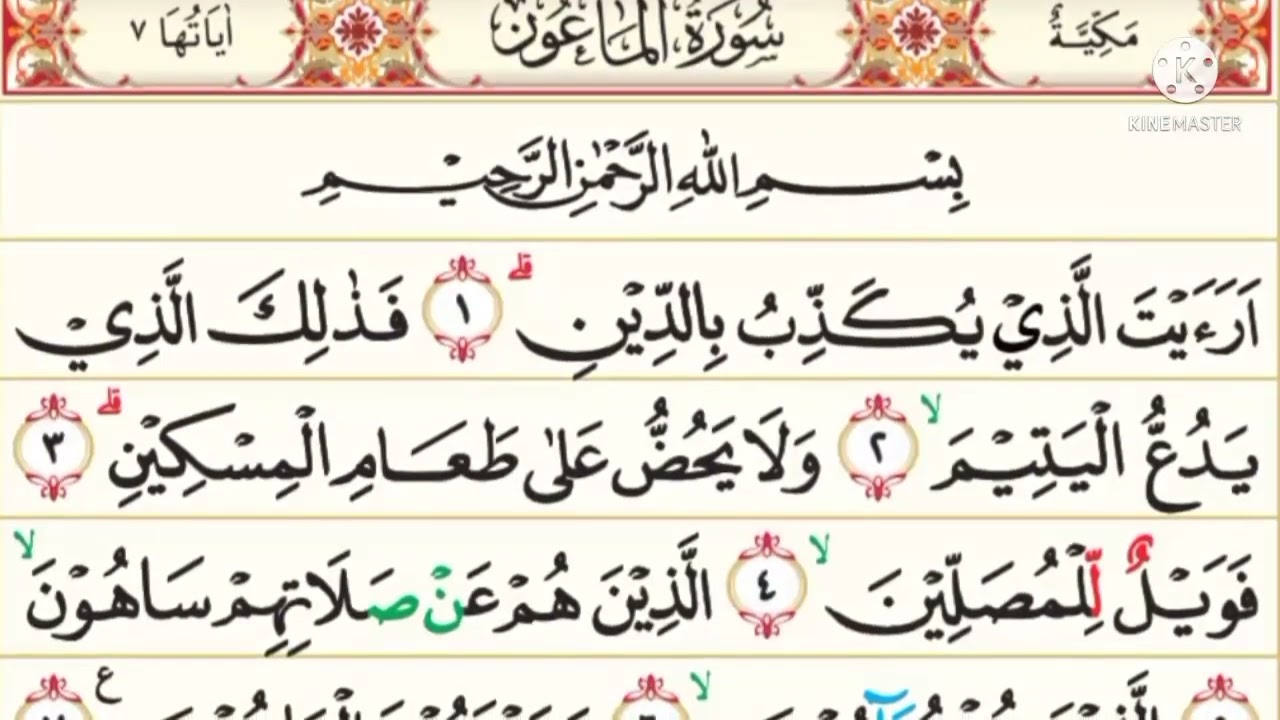 مَكِّيَّةٌ سُوْرَةُ الْمَاعُوْنَ اٰيَاتُهَا ٧
KINEMASTER
بِسْمِ اللّٰهِ الرَّحْمٰنِ الرَّحِيْمِ
اَرَءَيْتَ الَّذِيْ يُكَذِّبُ بِالدِّيْنِ ۗ ١ فَذٰلِكَ الَّذِيْ
يَدُعُّ الْيَتِيْمَ ۙ ٢ وَلَا يَحُضُّ عَلٰى طَعَامِ الْمِسْكِيْنِ ۗ ٣
فَوَيْلٌ لِّلْمُصَلِّيْنَ ۙ ٤ الَّذِيْنَ هُمْ عَنْ صَلَاتِهِمْ سَاهُوْنَ ۙ